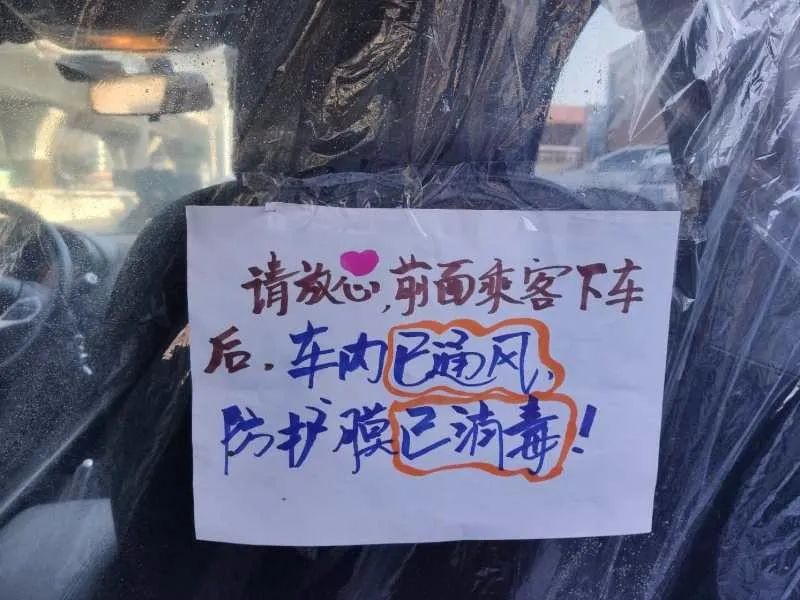 请放心,前面乘客下车
后.车内已通风,
防护膜已消毒!